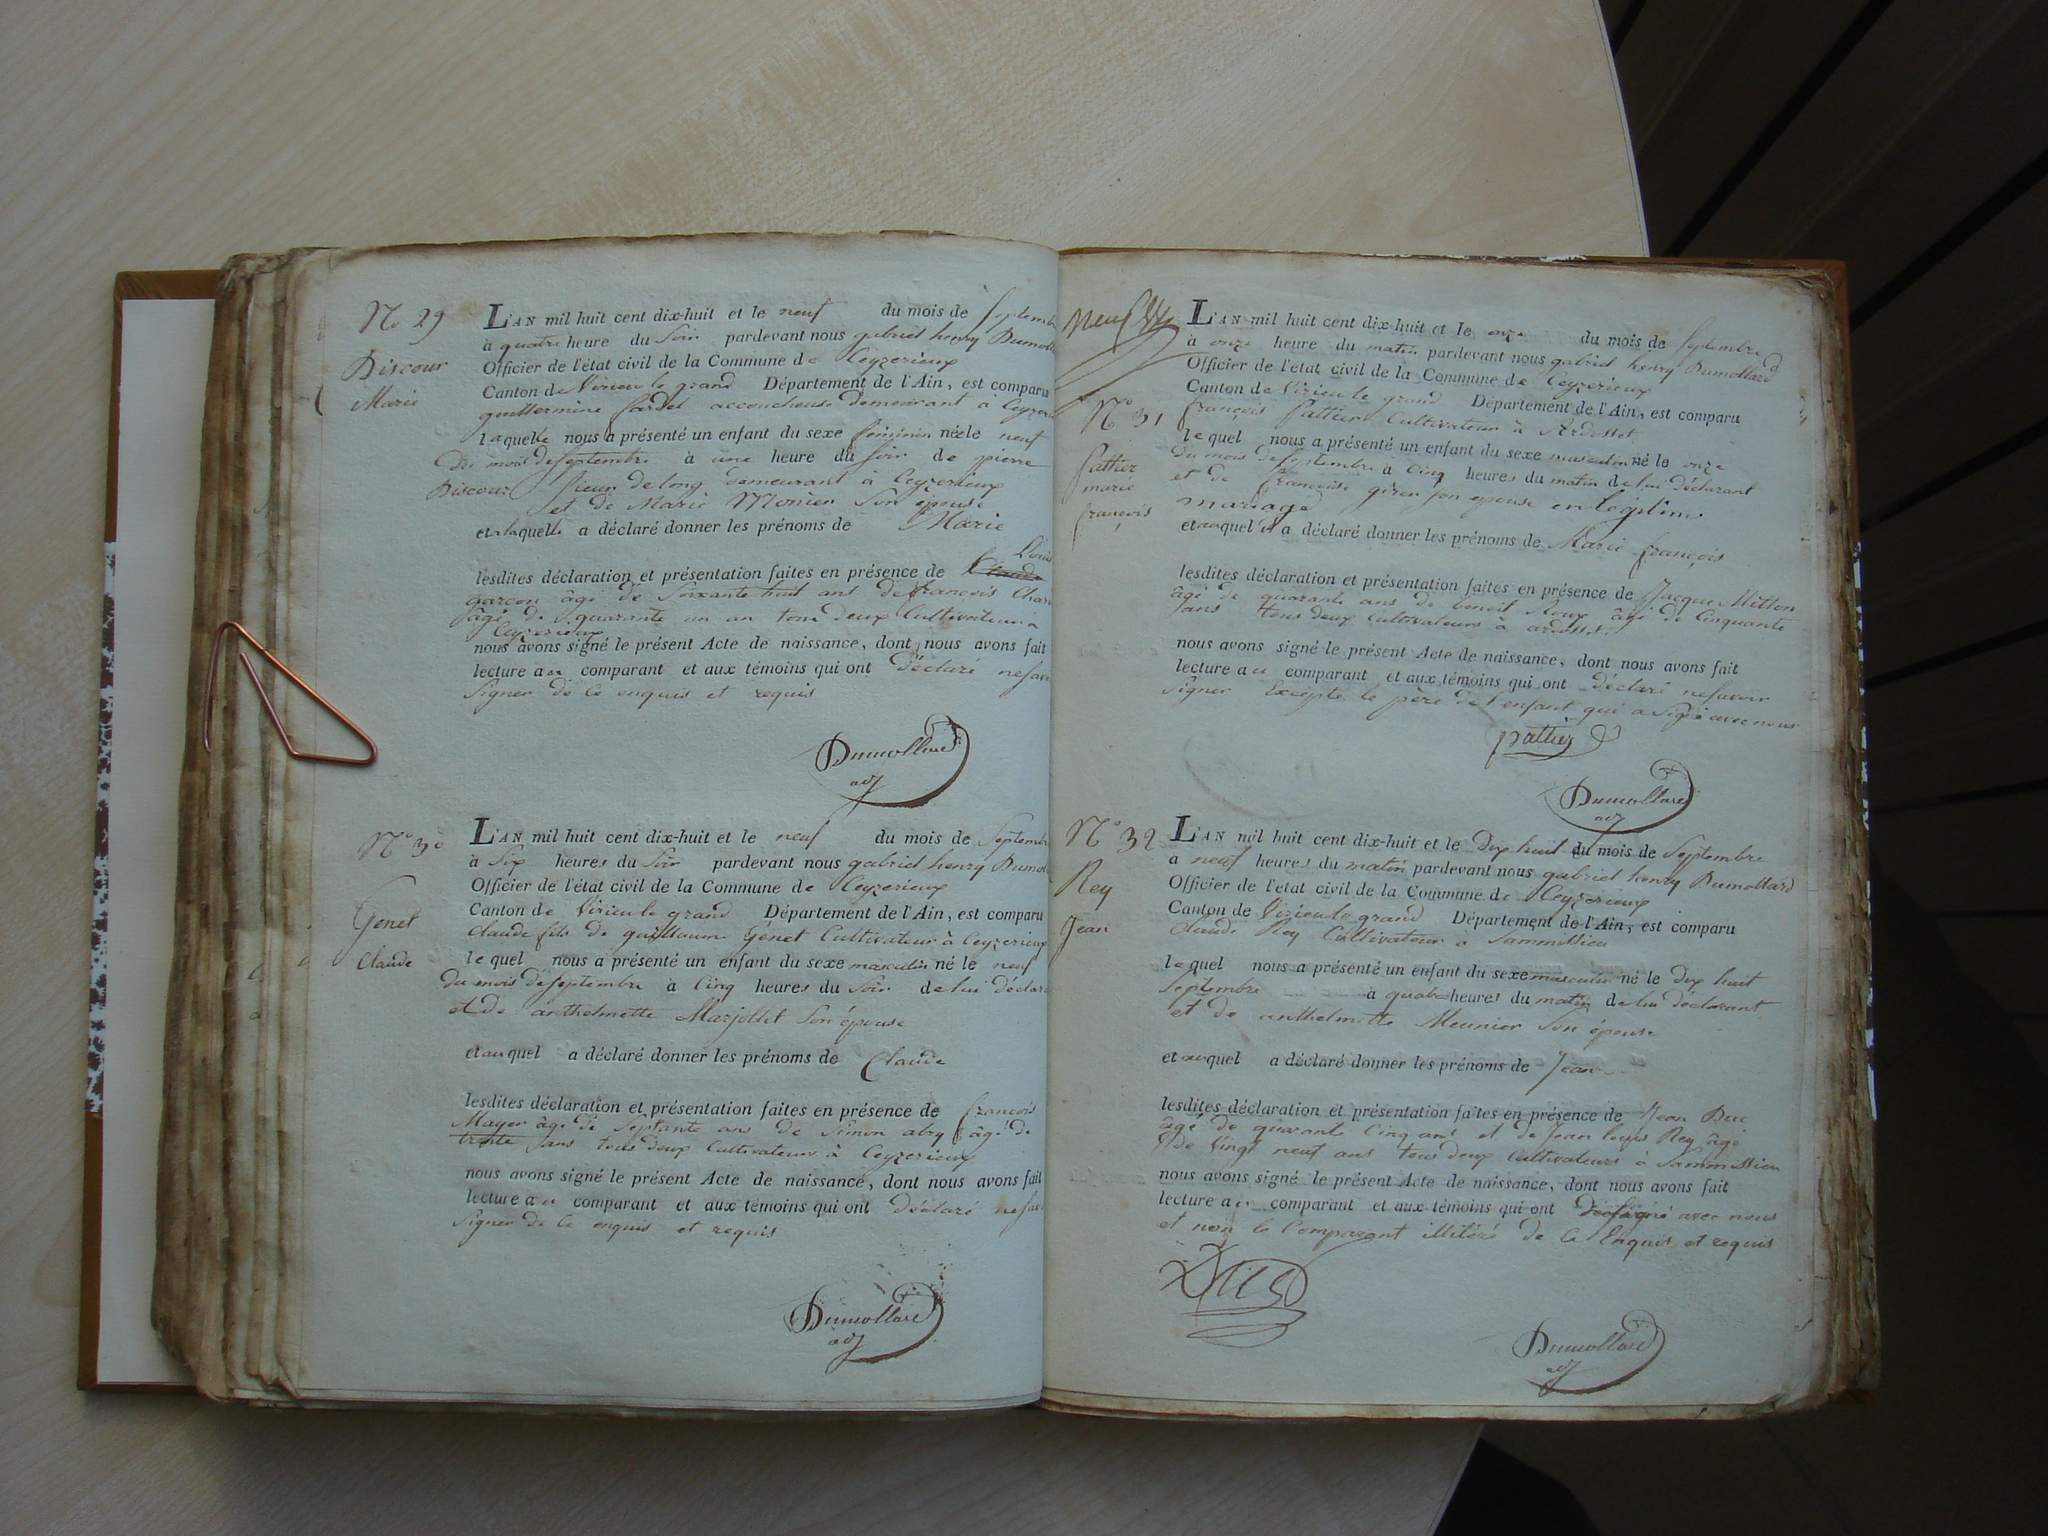 No 29
Discour
Marie
L'AN mil huit cent dix-huit et le neuf du mois de Septemb
à quatre heure du Soir pardevant nous gabriel henry Dumoll
Officier de l'état civil de la Commune de Ceyzerieux
Canton de Virieu le grand Département de l'Ain, est comparu
guillermine fardel accoucheuse demeurant à Ceyzeri
laquelle nous a présenté un enfant du sexe féminin née le neuf
du mois de Septembre à une heure du Soir de pierre
Discour Sieur de long demeurant à Ceyzerieux
et de Marie Monier Son épouse
et à laquelle a déclaré donner les prénoms de Marie
Louis
lesdites déclaration et présentation faites en présence de Claude
garçon âgé de Soixante huit ans de françois Char
âgé de quarante un an tous deux Cultivateur à
Ceyzerieux
nous avons signé le présent Acte de naissance, dont nous avons fait
lecture au comparant et aux témoins qui ont déclaré ne sav
Signer de Ce enquis et requis
Dumollard
adj
N° 30
Genet
Claude
L'AN mil huit cent dix-huit et le neuf du mois de Septemb
à Six heures du Soir pardevant nous gabriel henry Dumol
Officier de l'état civil de la Commune de Ceyzerieux
Canton de Virieu le grand Département de l'Ain, est comparu
Claude fils de guillaume Genet Cultivateur à Ceyzerieux
lequel nous a présenté un enfant du sexe masculin né le neuf
du mois de Septembre à Cinq heures du Soir de lui déclar
et de anthelmette Marjollet Son épouse
et auquel a déclaré donner les prénoms de Claude
lesdites déclaration et présentation faites en présence de françois
Mayer âgé de Septante ans de Simon abry âgé de
trente ans tous deux Cultivateurs à Ceyzerieux
nous avons signé le présent Acte de naissance, dont nous avons fait
lecture au comparant et aux témoins qui ont déclaré ne sav
Signer de Ce enquis et requis
Dumollard
adj
neuf
N° 31
pattier
marie
françois
L'AN mil huit cent dix-huit et le onze du mois de Septembre
à onze heure du matin pardevant nous gabriel henry Dumollard
Officier de l'état civil de la Commune de Ceyzerieux
Canton de Virieu le grand Département de l'Ain, est comparu
françois pattier Cultivateur à Ardosset
lequel nous a présenté un enfant du sexe masculin né le onze
du mois de Septembre à Cinq heures du matin de lui déclarant
et de françoise girer son épouse en légitime
mariage
et auquel il a déclaré donner les prénoms de Marie françois
lesdites déclaration et présentation faites en présence de Jacque Mitton
âgé de quarante ans de benoit Roux âgé de Cinquante
ans tous deux Cultivateurs à ardosset
nous avons signé le présent Acte de naissance, dont nous avons fait
lecture au comparant et aux témoins qui ont déclaré ne savoir
signer Excepté le père de l'enfant qui a Signé avec nous
pattier
Dumollard
adj
N° 32
Rey
Jean
L'AN mil huit cent dix-huit et le Dix huit du mois de Septembre
à neuf heures du matin pardevant nous gabriel henry Dumollard
Officier de l'état civil de la Commune de Ceyzerieux
Canton de Virieu le grand Département de l'Ain, est comparu
Claude Rey Cultivateur à Sammissieu
lequel nous a présenté un enfant du sexe masculin né le dix huit
Septembre à quatre heures du matin de lui déclarant
et de anthelmette Meunier Son épouse
et auquel a déclaré donner les prénoms de Jean
lesdites déclaration et présentation faites en présence de Jean Duc
âgé de quarante Cinq ans et de Jean louis Rey âgé
de Vingt neuf ans tous deux cultivateurs à Sammissieu
nous avons signé le présent Acte de naissance, dont nous avons fait
lecture au comparant et aux témoins qui ont signé avec nous
et non le Comparant illitéré de Ce Enquis et requis
Duc
Dumollard
adj